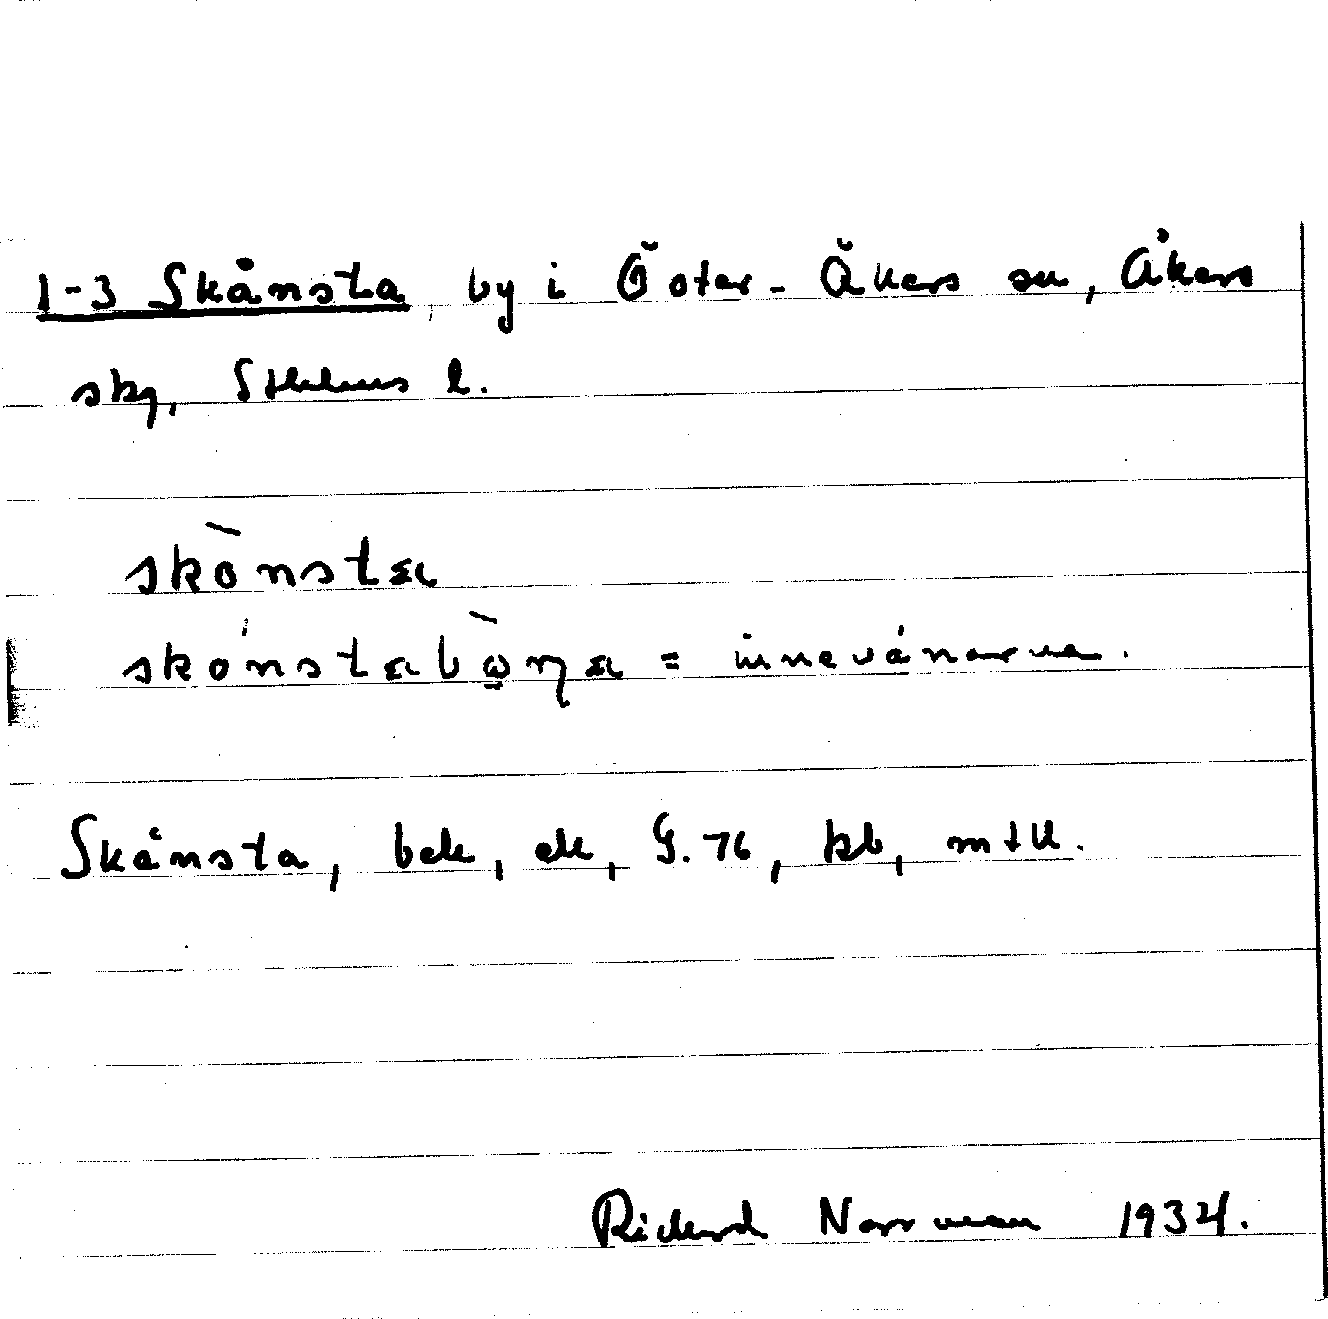 1-3 Skånsta, by i Öster-Åkers sn, Åkers
skg, Sthlms l.
skònsta
skónstabòŋa = innevånarna.
Skånsta, bek, ek, G. 76, kb, mtl.
Rickard Norrman 1934.